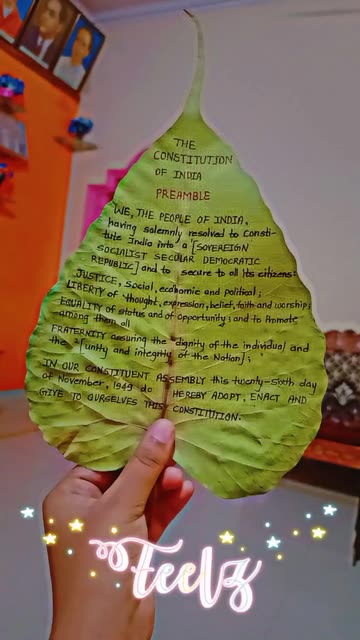 THE
CONSTITUTION
OF INDIA
PREAMBLE
WE, THE PEOPLE OF INDIA,
having solemnly resolved to Consti-
tute India into a [SOVEREIGN
SOCIALIST SECULAR DEMOCRATIC
REPUBLIC] and to secure to all its citizens:
JUSTICE, Social, economic and political;
LIBERTY of thought, expression, belief, faith and worship;
EQUALITY of status and of opportunity; and to Promote
among them all
FRATERNITY assuring the dignity of the individual and
the 2[unity and integrity of the Nation];
IN OUR CONSTITUENT ASSEMBLY this twenty-sixth day
of November, 1949 do HEREBY ADOPT, ENACT AND
GIVE TO OURSELVES THIS CONSTITUTION.
Feelz